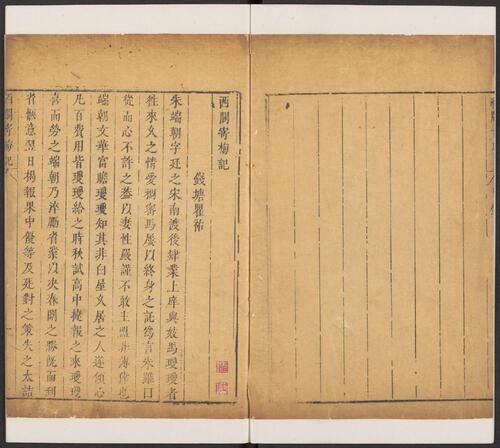 西閣寄梅記
錢塘瞿祐
朱端朝字廷之宋南渡後肄業上庠與妓馬瓊瓊者
往來久之情愛稠密馬屢以終身之託為言朱雖口
從而心不許之蓋以妻性嚴謹不敢主盟非薄倖也
端朝文華富贍瓊瓊知其非白屋久居之人遂傾心
凡百費用皆瓊瓊給之時秋試高中捷報之來瓊瓊
喜而勞之端朝乃淬勵省業以決春闈之勝既而到
省愜意翌日揭報果中優等及廷對之策失之太詰
西閣寄梅記